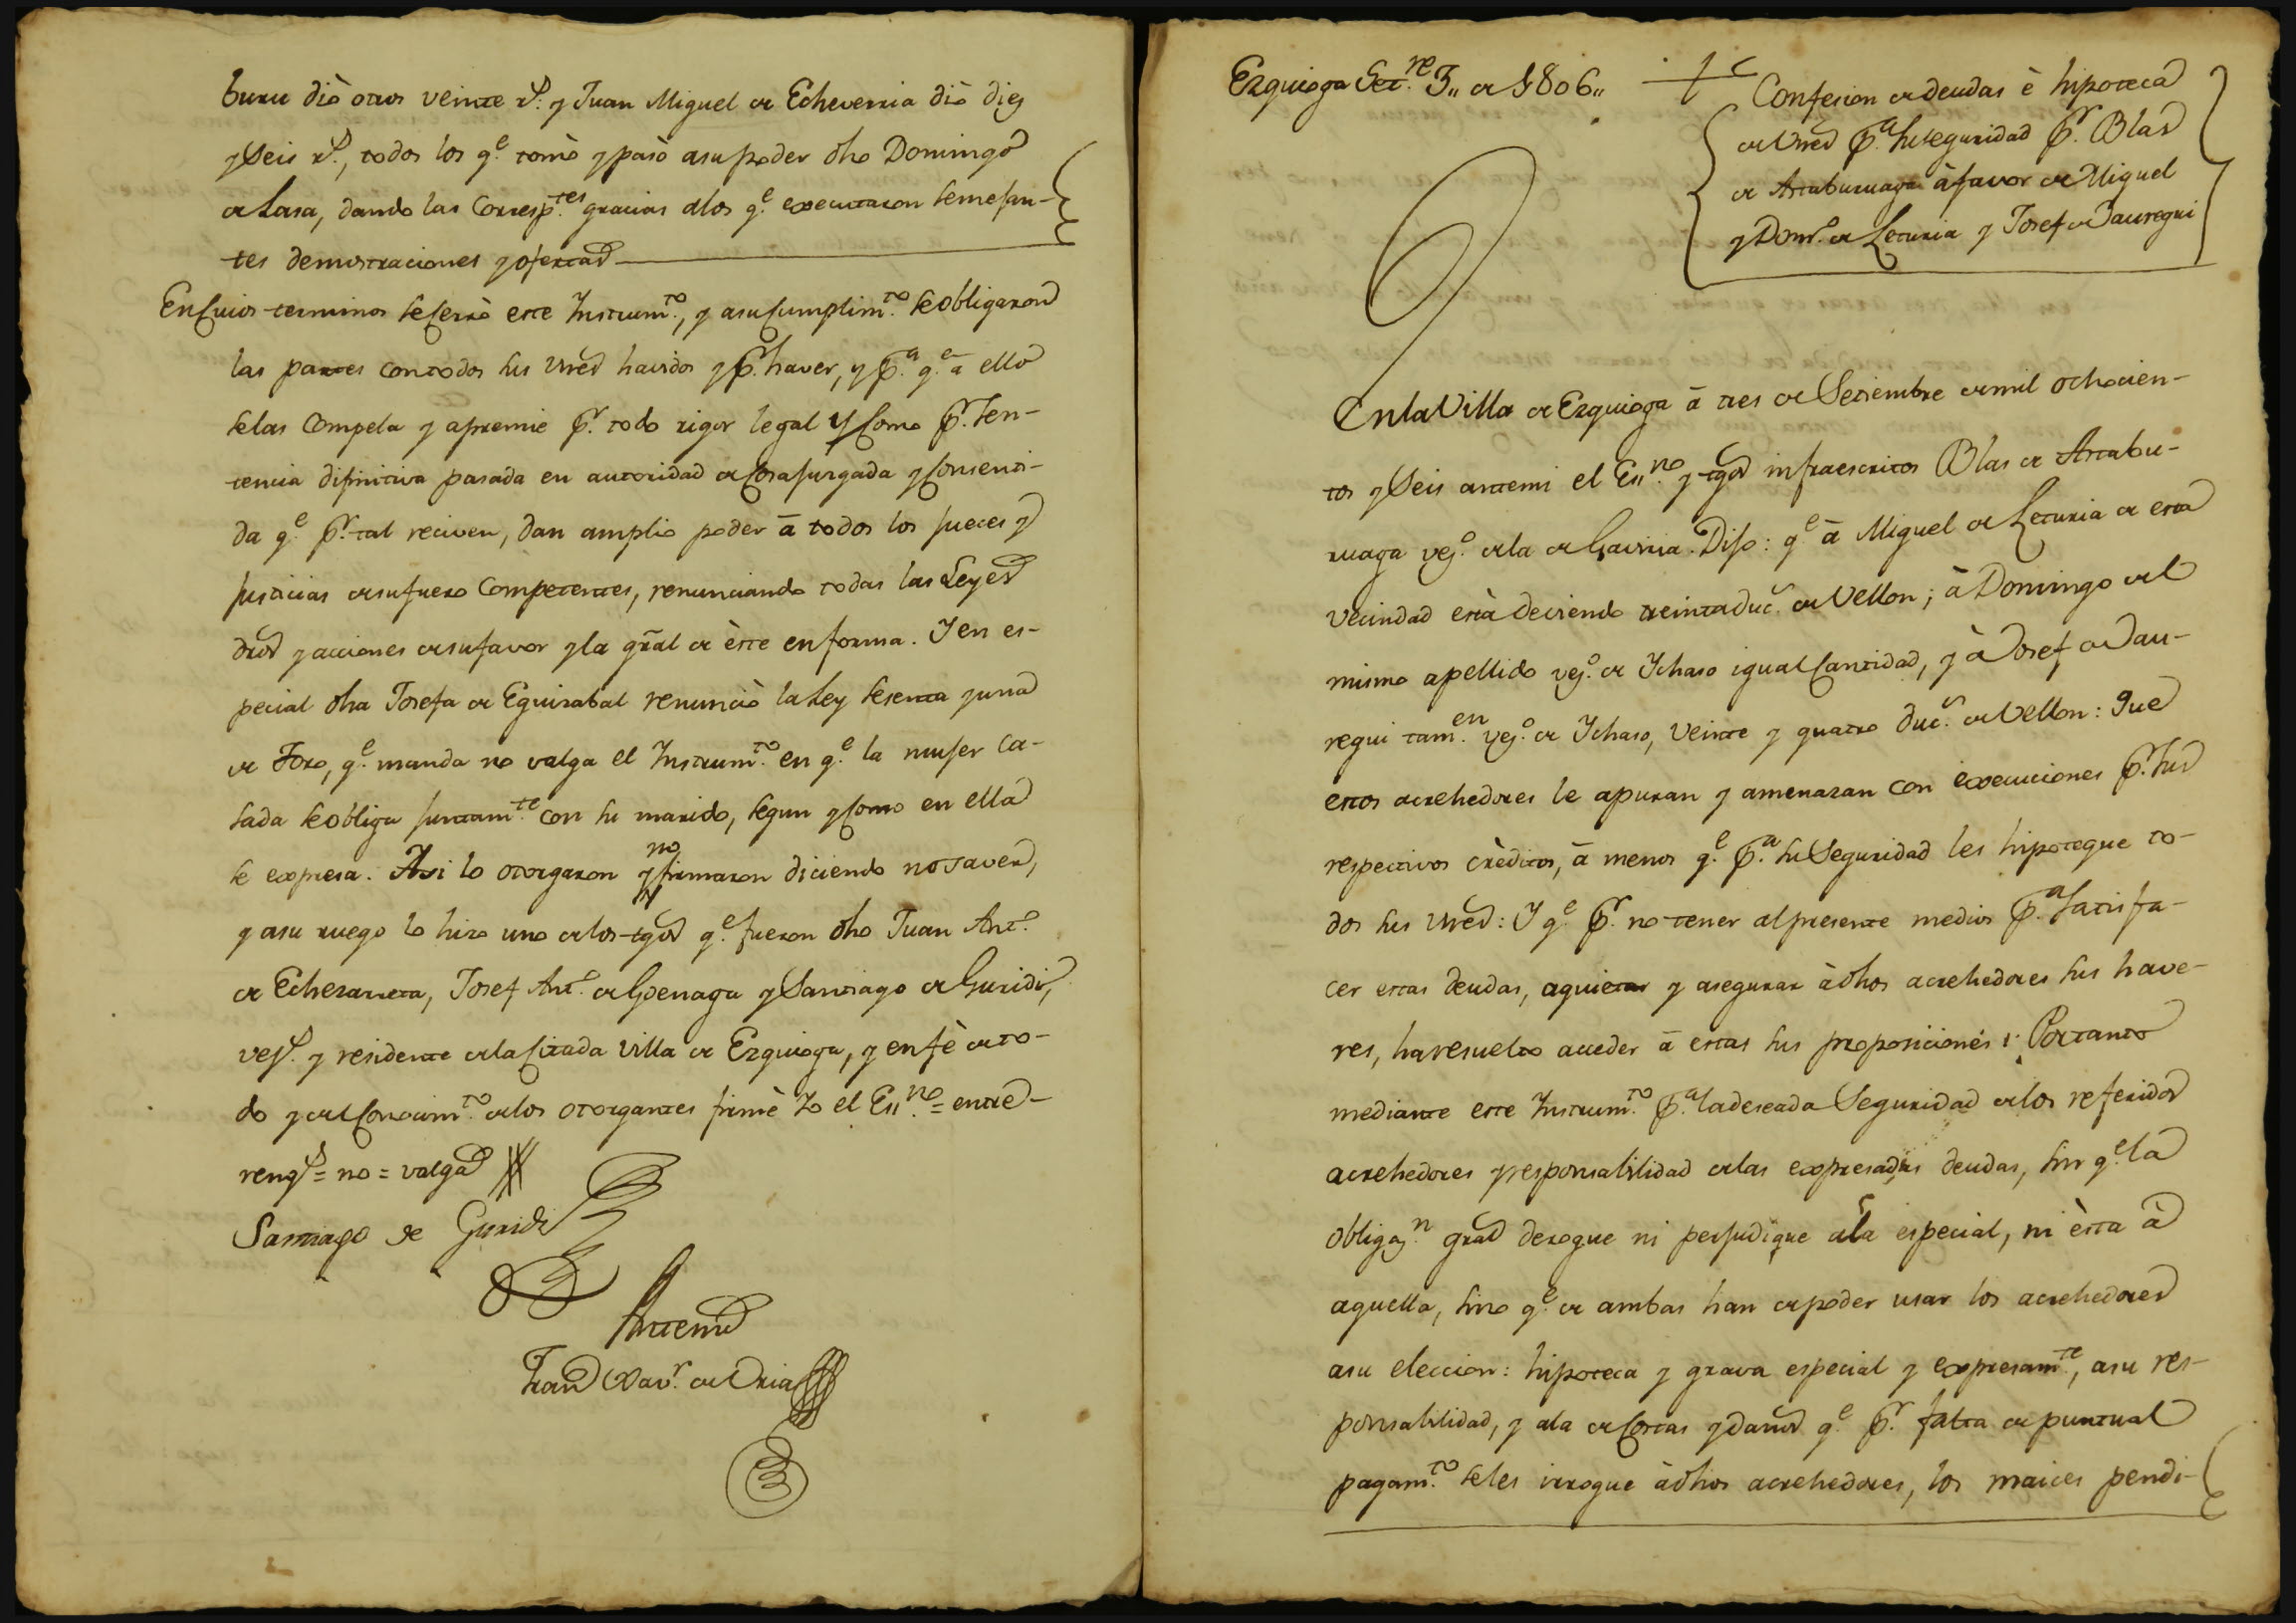 buru diò otros veinte rs. y Juan Miguel de Echeverria diò diez
y Seis rs., todos los qe. tomò y pasò a su poder dho Domingo
de Lasa, dando las Corresptes. gracias a los qe. executaron semejan-
tes demostraciones y ofertas
En Cuios terminos se Cerrò este Instrumto., y a su Cumplimto. se obligaron
las partes con todos sus vnes havidos y pr. haver, y pa. qe. â ello
se las Compela y apremie pr. todo rigor legal y Como pr. Sen-
tencia difinitiva pasada en autoridad de Cosa jurgada y Consenti-
da qe. pr. tal reciven, dan amplio poder â todos los jueces y
justicias de su fuero Competentes, renunciando todas las Leyes
dros y acciones de su favor y la gral de èste en forma. Y en es-
pecial dha Josefa de Eguirabal renunciò la Ley sesenta y una
de Toro, qe. manda no valga el Instrumto. en qe. la mujer Ca-
sada se obliga juntamte. con su marido, segun y Como en ella
se expresa. Asi lo otorgaron y no firmaron diciendo no saver,
y a su ruego lo hizo uno de los tgos qe. fueron dho Juan Anto.
de Echezarreta, Josef Anto. de Goenaga y Santiago de Guridi,
vezs. y residente de la Citada Villa de Ezquioga, y en fè de to-
do y del Conocimto. de los otorgantes firmè Yo el Essno. = entre-
rengs = no = valga
Santiago de Guridi
Antemi
Franco Xavr. de Oria
Ezquioga Setre. 3,, de 1806,,
Confesion de deudas è hipoteca
de vnes pa. su seguridad pr. Blas
de Artaburuaga à favor de Miguel
y Domo. de Leturia y Josef de Jauregui
En la Villa de Ezquioga â tres de Setiembre de mil ochocien-
tos y Seis antemi el Essno. y tgos infraescritos Blas de Artabu-
ruaga vezo. de la de Gaviria. Dijo: qe. â Miguel de Leturia de esta
Vecindad està deviendo treinta ducs. de Vellon; à Domingo del
mismo apellido vezo. de Ychaso igual Cantidad, y à Josef de Jau-
regui tamen. vezo. de Ychaso, Veinte y quatro ducs. de Vellon: Que
estos acrehedores le apuran y amenazan con execuciones pr. sus
respectivos crèditos, â menos qe. pa. su Seguridad les hipoteque to-
dos sus vnes: Y qe. pr. no tener al presente medios pa. satisfa-
cer estas deudas, aquietar y asegurar à dhos acrehedores sus have-
res, ha resuelto acceder â estas sus proposiciones: Por tanto
mediante este Instrumto. pa. la deseada Seguridad de los referidos
acrehedores y responsabilidad de las expresadas deudas, sin qe. la
obligazn. gral derogue ni perjudique a la especial, ni èsta à
aquella, sino qe. de ambas han de poder usar los acrehedores
a su eleccion: hipoteca y grava especial y expresamte., a su res-
ponsabilidad, y a la de Costas y daños qe. pr. falta de puntual
pagamto. se les irrogue à dhos acrehedores, los maices pendi-